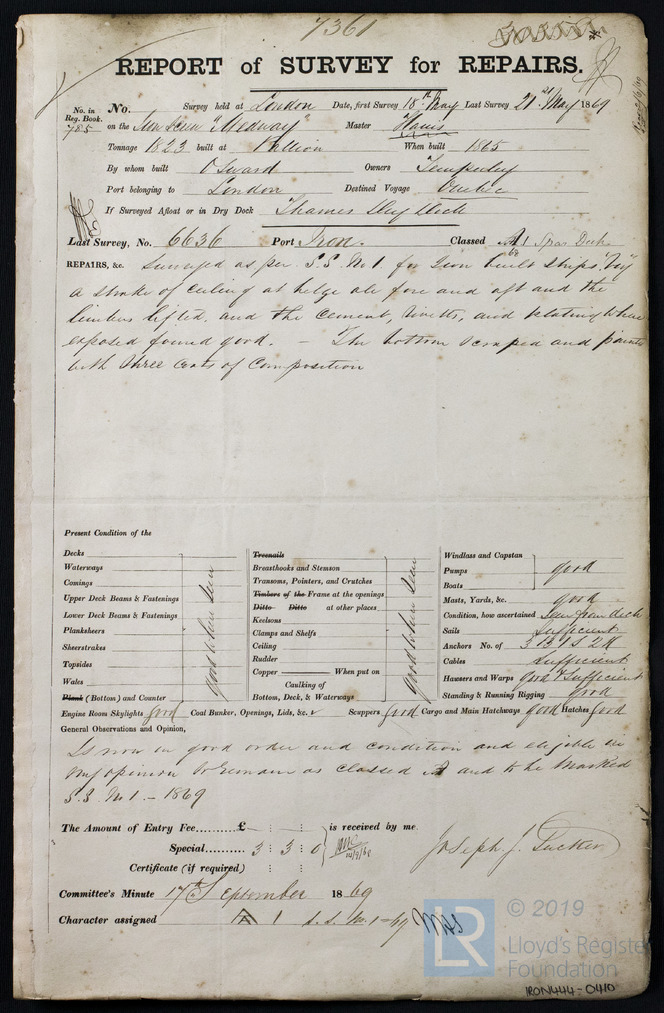 7361
REPORT of SURVEY for REPAIRS.
No. in Reg. Book. 785
No. Survey held at London Date, first Survey 18th May Last Survey 21st May 1869
on the Iron Screw "Medway" Master Harris
Tonnage 1823 built at Pallion When built 1865
By whom built Oswald Owners Temperley
Port belonging to London Destined Voyage Quebec
If Surveyed Afloat or in Dry Dock Thames Dry Dock
Last Survey, No. 6636 Port Iron. Classed A1 Spar Deck
68
REPAIRS, &c. Surveyed as per S.S. No 1. for Iron built ships. Viz
a strake of ceiling at belge ale fore and aft and the
limbers lifted. and the cement, rivetts, and plating where
exposed found good. – The bottom scraped and painted
with three coats of composition
Present Condition of the
Decks
Waterways
Comings
Upper Deck Beams & Fastenings
Lower Deck Beams & Fastenings
Planksheers
Sheerstrakes
Topsides
Wales
Plank (Bottom) and Counter
good where seen
Treenails
Breasthooks and Stemson
Transoms, Pointers, and Crutches
Timbers of the Frame at the openings
Ditto Ditto at other places
Keelsons
Clamps and Shelfs
Ceiling
Rudder
Copper When put on
Caulking of
Bottom, Deck, & Waterways
good where seen
Windlass and Capstan
Pumps good
Boats
Masts, Yards, &c. good
Condition, how ascertained seen from deck
Sails Sufficient
Anchors No. of 3 B 1 S 2 K
Cables Sufficient
Hawsers and Warps Good & Sufficient
Standing & Running Rigging good
Engine Room Skylights good Coal Bunker, Openings, Lids, &c. Scuppers good Cargo and Main Hatchways good Hatches good
General Observations and Opinion,
Is now in good order and condition and eligible in
my opinion to remain as classed A and to be marked
S.S. No 1. – 1869
The Amount of Entry Fee.......... £ : : is received by me
Special.......... 3 : 3 : 0
Certificate (if required) : :
Joseph J. Tucker
Committee's Minute 17th September 1869
Character assigned A 1 s.s. No. 1-69
© 2019
LR
Lloyd's Register
Foundation
IRON444-0410